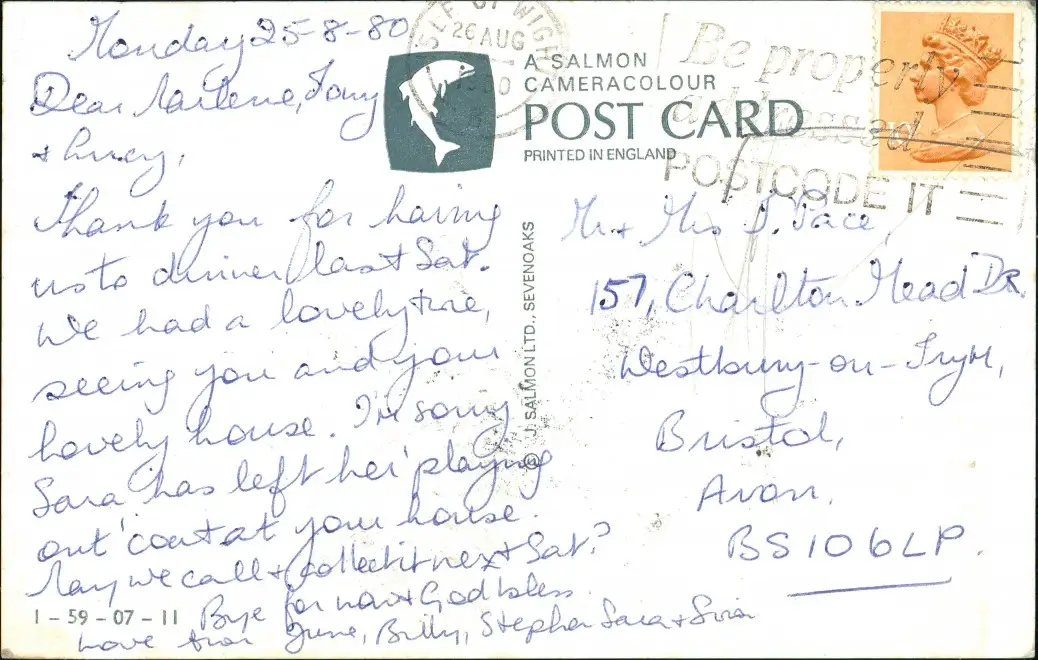 Monday 25-8-80
Dear Marlene, Tony
+ Lucy,
Thank you for having
us to dinner last Sat.
We had a lovely time,
seeing you and your
lovely house. I'm sorry
Sara has left her 'playing
out' coat at your house.
May we call + collect it next Sat?
Bye for now + God bless
Love from June, Billy, Stephen Sara +
1-59-07-11
ISLE OF WIGHT
26 AUG
1980
A SALMON
CAMERACOLOUR
POST CARD
PRINTED IN ENGLAND
© J. SALMON LTD., SEVENOAKS
Be properly
addressed
POSTCODE IT
Mr + Mrs Pace,
157, Charlton Mead DR.
Westbury-on-Trym,
Bristol,
Avon.
BS10 6LP.